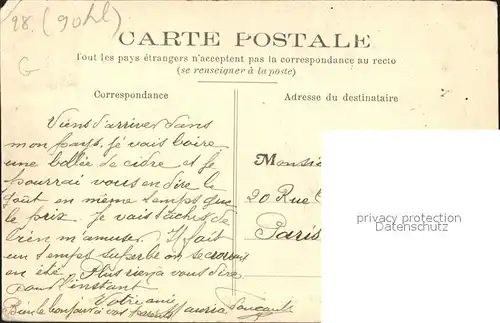 28. (90hl)
G
CARTE POSTALE
Tout les pays étrangers n'acceptent pas la correspondance au recto
(se renseigner à la poste)
Correspondance
Viens d'arriver dans
mon pays, je vais boire
une bollée de cidre et je
pourrai vous en dire le
goût en même temps que
le prix. Je vais tâcher de
bien m'amuser. Il fait
un temps superbe on se croirait
en été. Plus rien à vous dire
pour l'instant
Votre amie
Bien le bonjour à vos parents
Adresse du destinataire
Monsi
20 Rue
Paris
privacy protection
Datenschutz